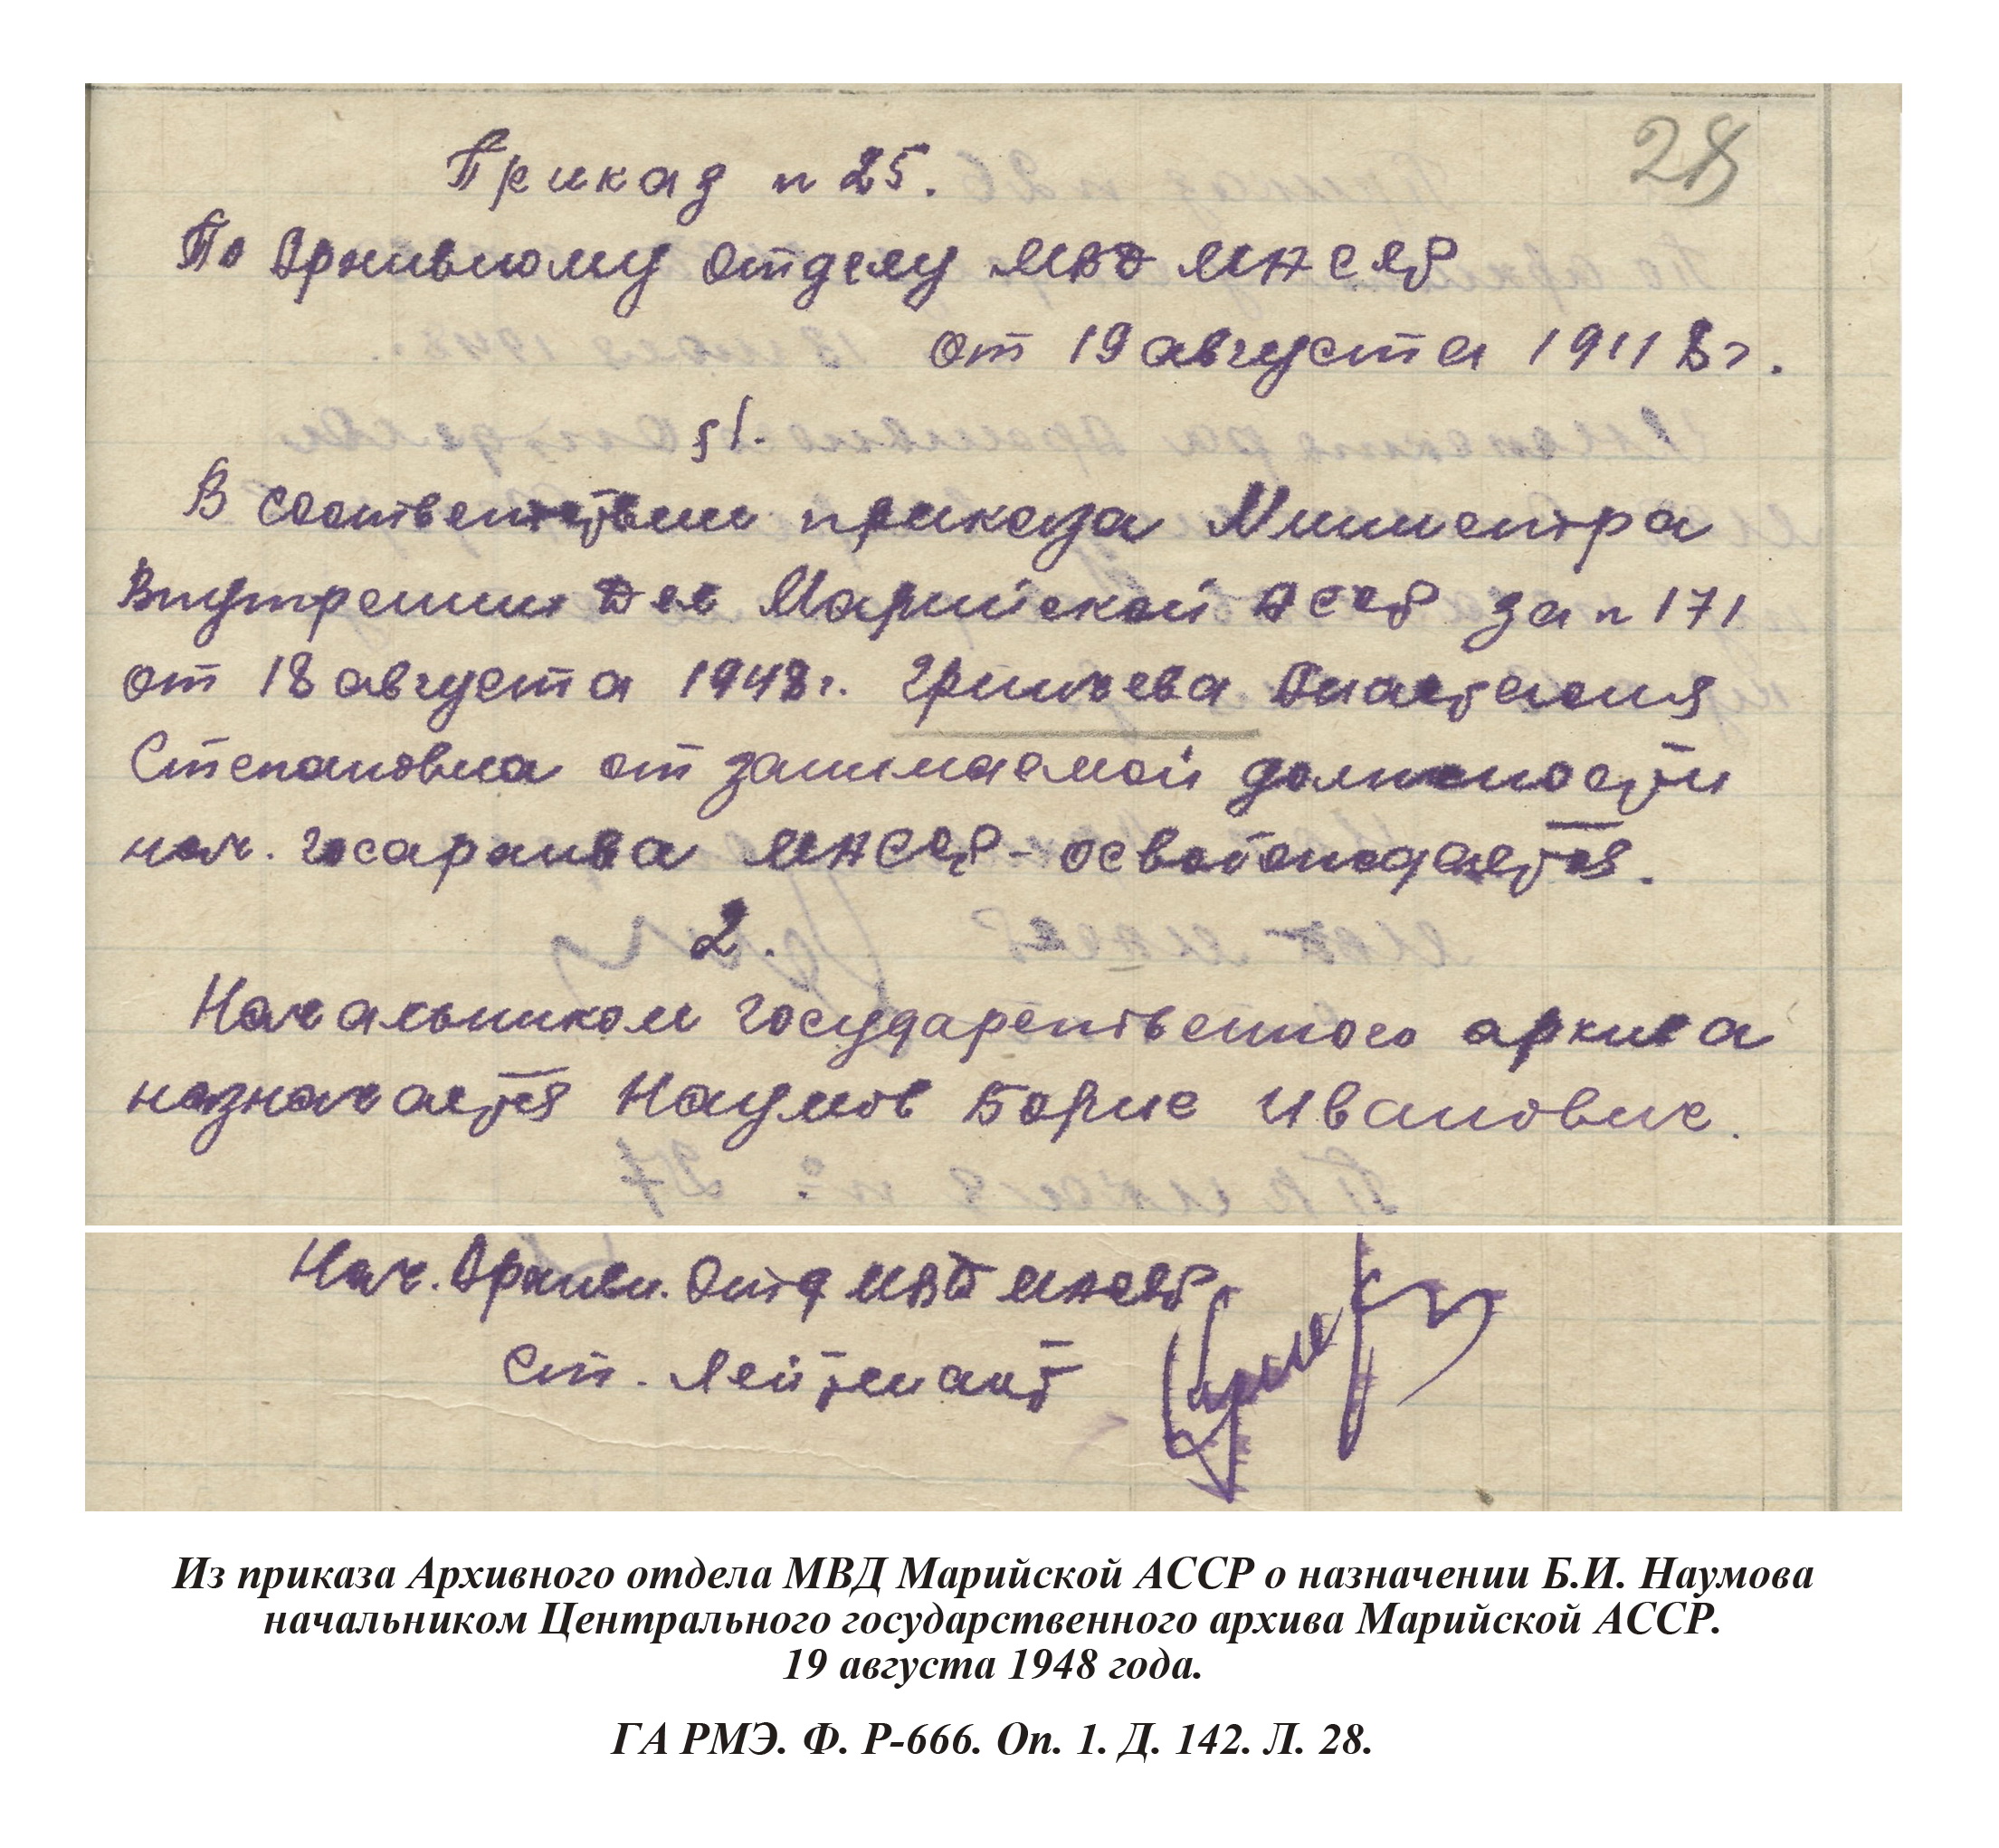 28
Приказ n 25.
По Архивному отделу МВД МАССР
от 19 августа 1948 г.
§1.
В соответствии приказа Министра
Внутренних Дел Марийской АССР за n 171
от 18 августа 1948 г. Гринчева Анастасия
Степановна от занимаемой должности
нач. госархива МАССР – освобождается.
2.
Начальником государственного архива
назначается Наумов Борис Иванович.
Нач. Архивн. Отд МВД МАССР
Ст. Лейтенант
Из приказа Архивного отдела МВД Марийской АССР о назначении Б.И. Наумова
начальником Центрального государственного архива Марийской АССР.
19 августа 1948 года.
ГА РМЭ. Ф. Р-666. Оп. 1. Д. 142. Л. 28.